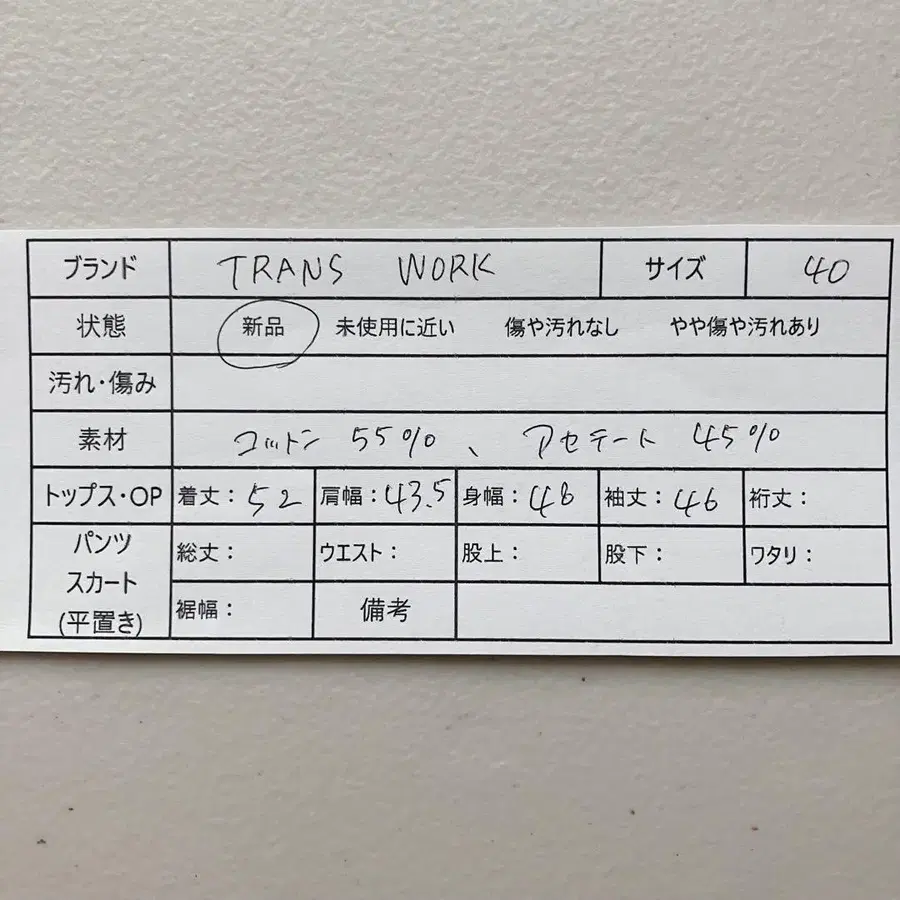 ブランド TRANS WORK サイズ 40
状態 新品 未使用に近い 傷や汚れなし やや傷や汚れあり
汚れ・傷み
素材 コットン 55%、アセテート 45%
トップス・OP 着丈：52 肩幅：43.5 身幅：48 袖丈：46 裄丈：
パンツ
スカート
(平置き)
総丈： ウエスト： 股上： 股下： ワタリ：
裾幅： 備考